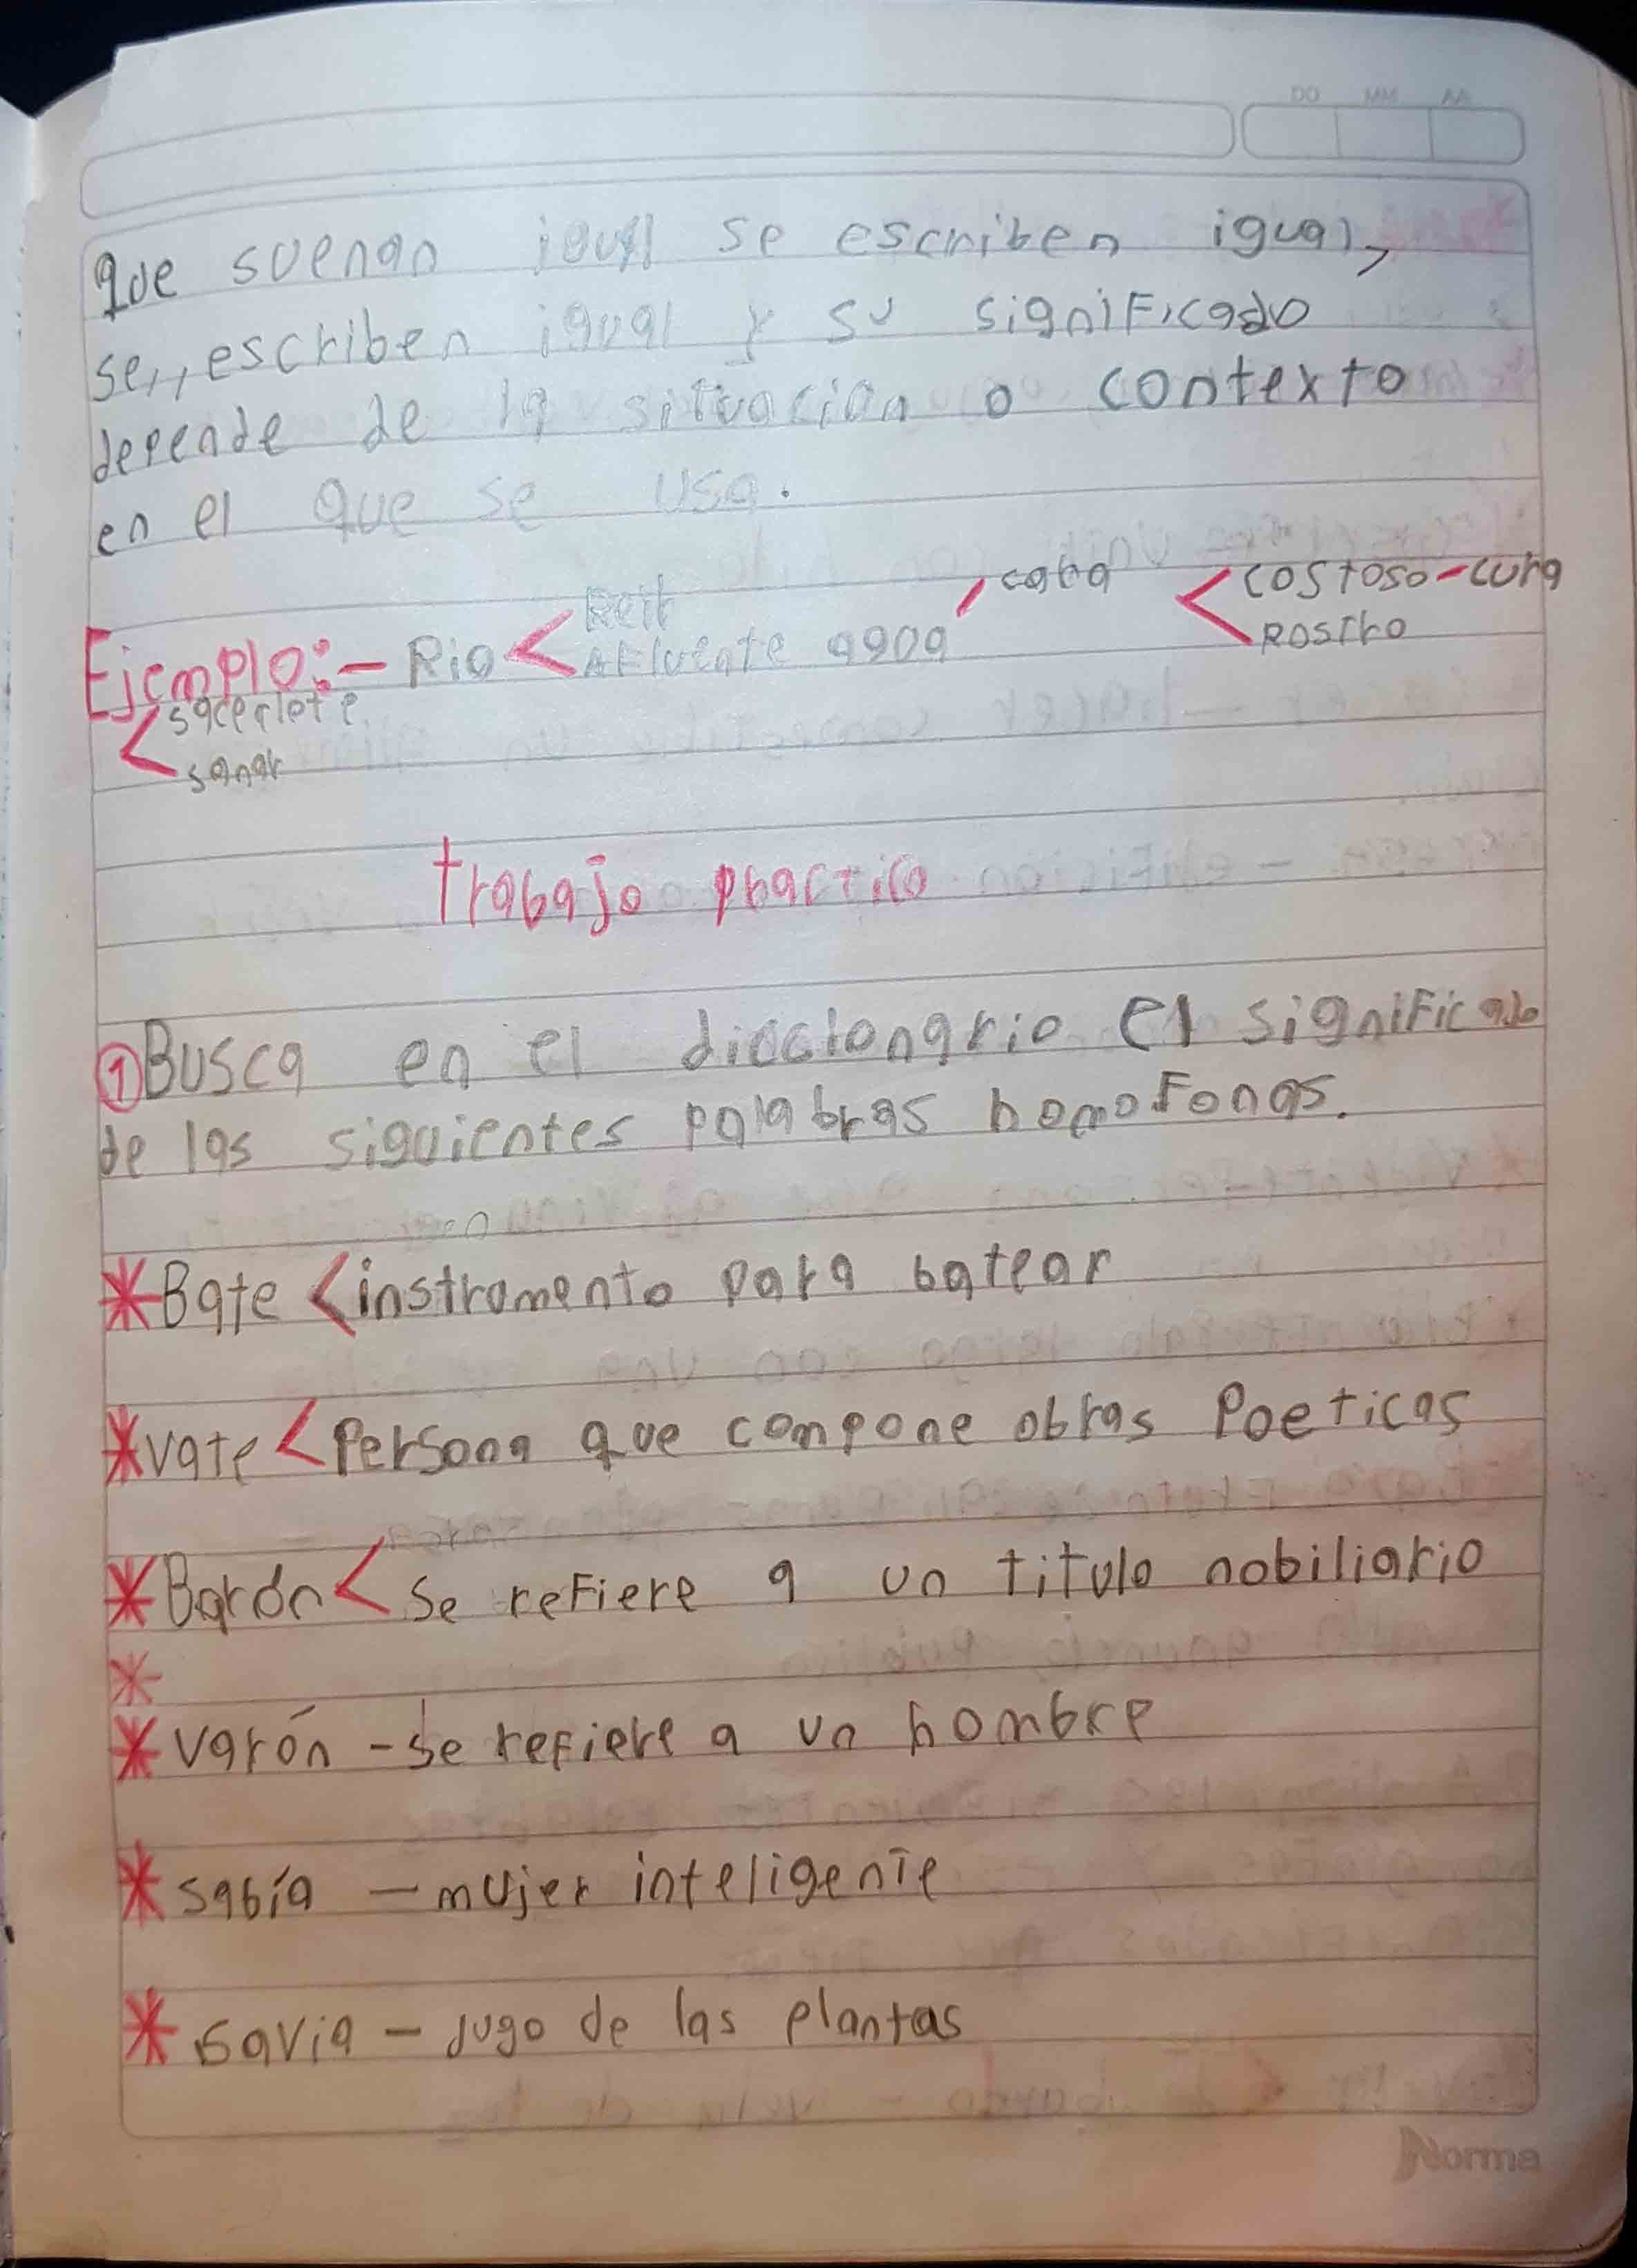 DD MM AA
que suenan igual se escriben igual,
se,, escriben igual y su significado
depende de la situación o contexto
en el que se usa.
Ejemplo: - Rio < Reir Afluente agua , cara < costoso - cura
Rostro
< sacerdote
sanar
trabajo practico
① Busca en el diccionario el significado
de las siguientes palabras homofonas.
* Bate < instrumento para batear
* vate < Persona que compone obras Poeticas
* Barón < se refiere a un titulo nobiliario
*
* varón - se refiere a un hombre
* sabía - mujer inteligente
* savia - jugo de las plantas
Norma